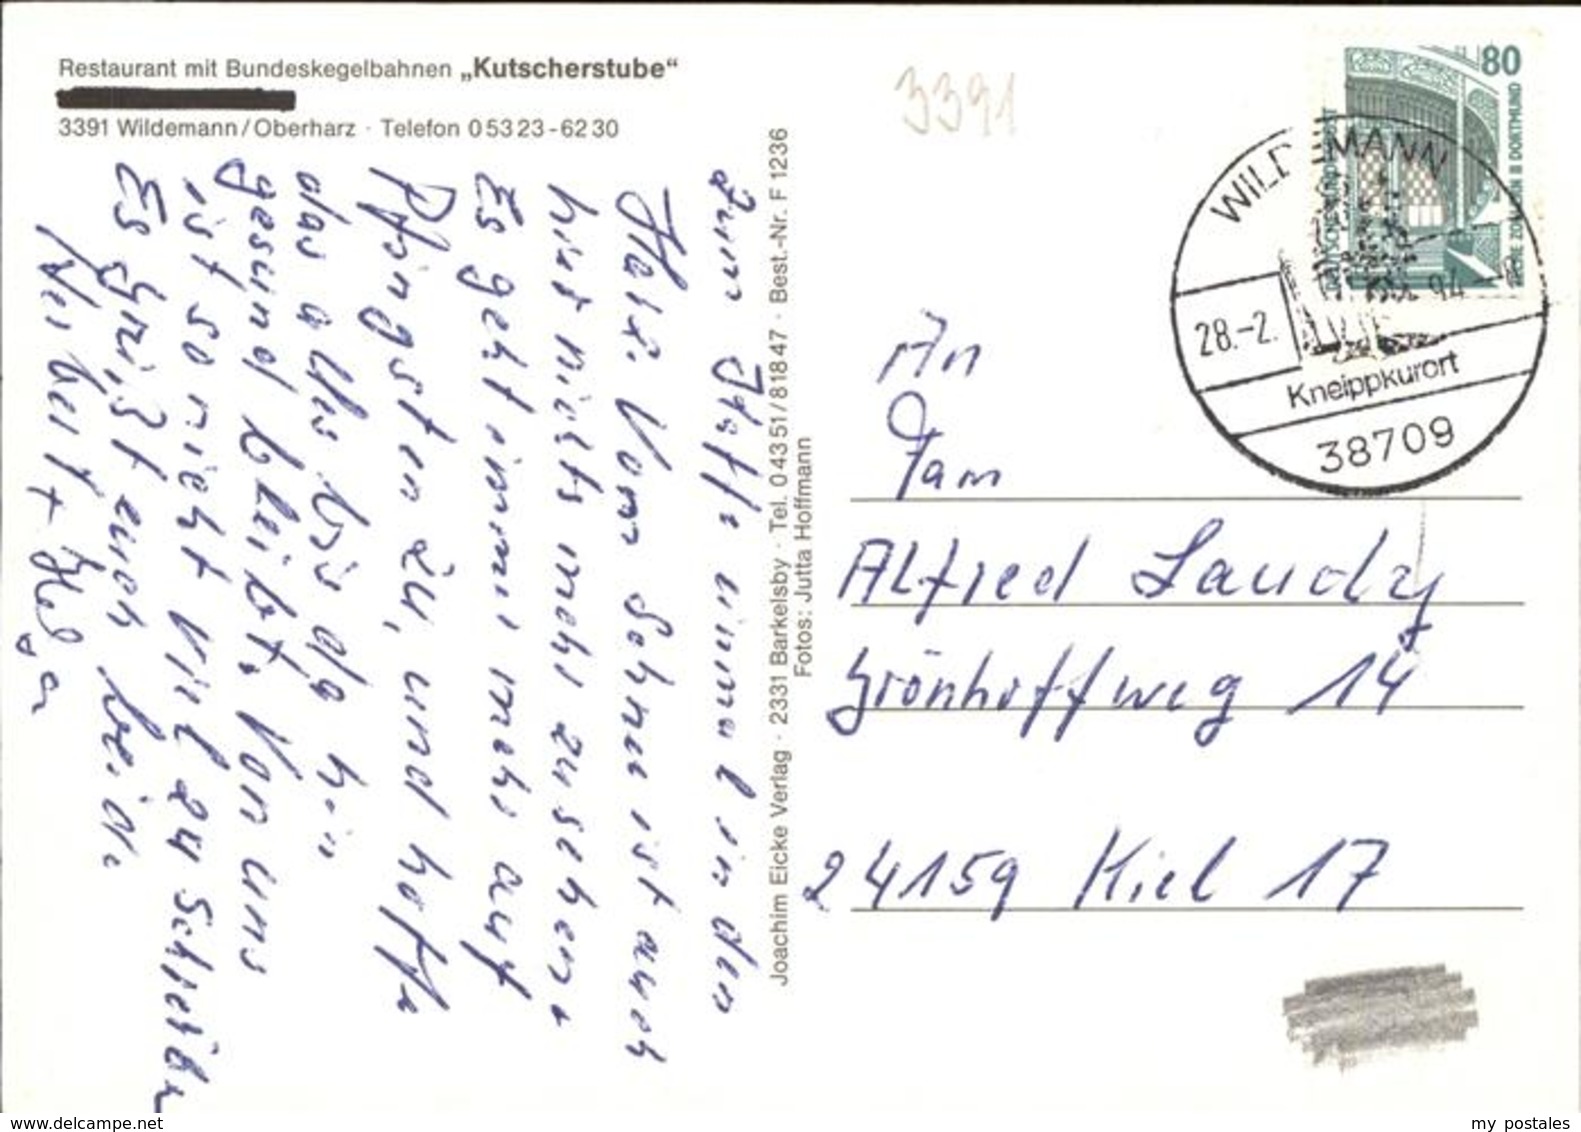 Restaurant mit Bundeskegelbahnen „Kutscherstube“
3391 Wildemann/Oberharz · Telefon 05323-6230
3391
80
WILDEMANN
28.-2.
94
Kneippkurort
38709
An
Fam
Alfred Laudy
Grönhoffweg 14
24159 Kiel 17
Joachim Eicke Verlag · 2331 Barkelsby · Tel. 04351/81847 · Best.-Nr. F 1236
Fotos: Jutta Hoffmann
einmal in den
Harz. Vom Schnee ist auch
hier nichts mehr zu sehen
Es geht immer mehr auf
Pfingsten zu, und hoffe
das alles bis da hin
gesund bleibt. Von uns
ist so nicht viel zu schreiben
Es grüßt euch
+
www.delcampe.net
my postales